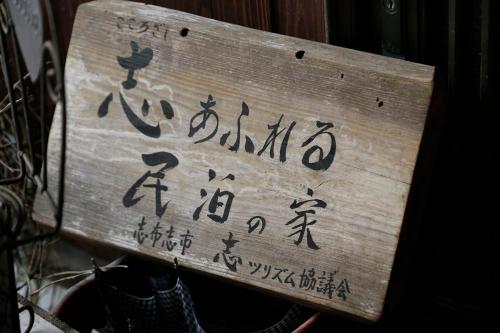 こころざし
志あふれる
民泊の家
志布志市
志ツリズム協議会